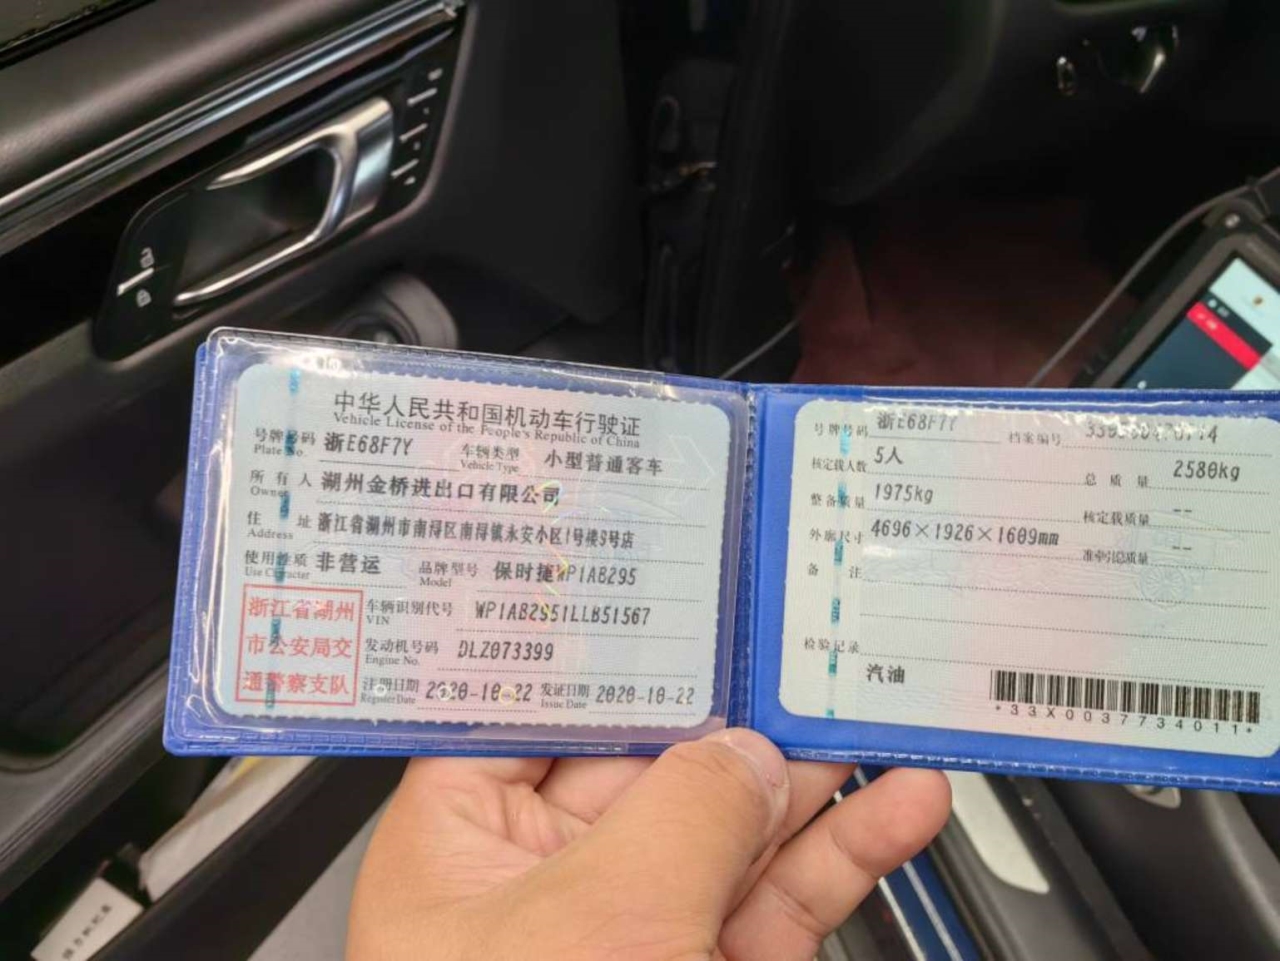 中华人民共和国机动车行驶证
Vehicle License of the People's Republic of China
号牌号码 浙E68F7Y 车辆类型 小型普通客车
Plate No. Vehicle Type
所有人 湖州金桥进出口有限公司
Owner
住址 浙江省湖州市南浔区南浔镇永安小区1号楼9号店
Address
使用性质 非营运 品牌型号 保时捷WP1AB295
Use Character Model
浙江省湖州
市公安局交
通警察支队
车辆识别代号 WP1AB2951LLB51567
VIN
发动机号码 DLZ073399
Engine No.
注册日期 2020-10-22 发证日期 2020-10-22
Register Date Issue Date
号牌号码 浙E68F7Y 档案编号
核定载人数 5人 总质量 2580kg
整备质量 1975kg 核定载质量 --
外廓尺寸 4696×1926×1609mm 准牵引总质量 --
备注
检验记录
汽油
*33X0037734011*